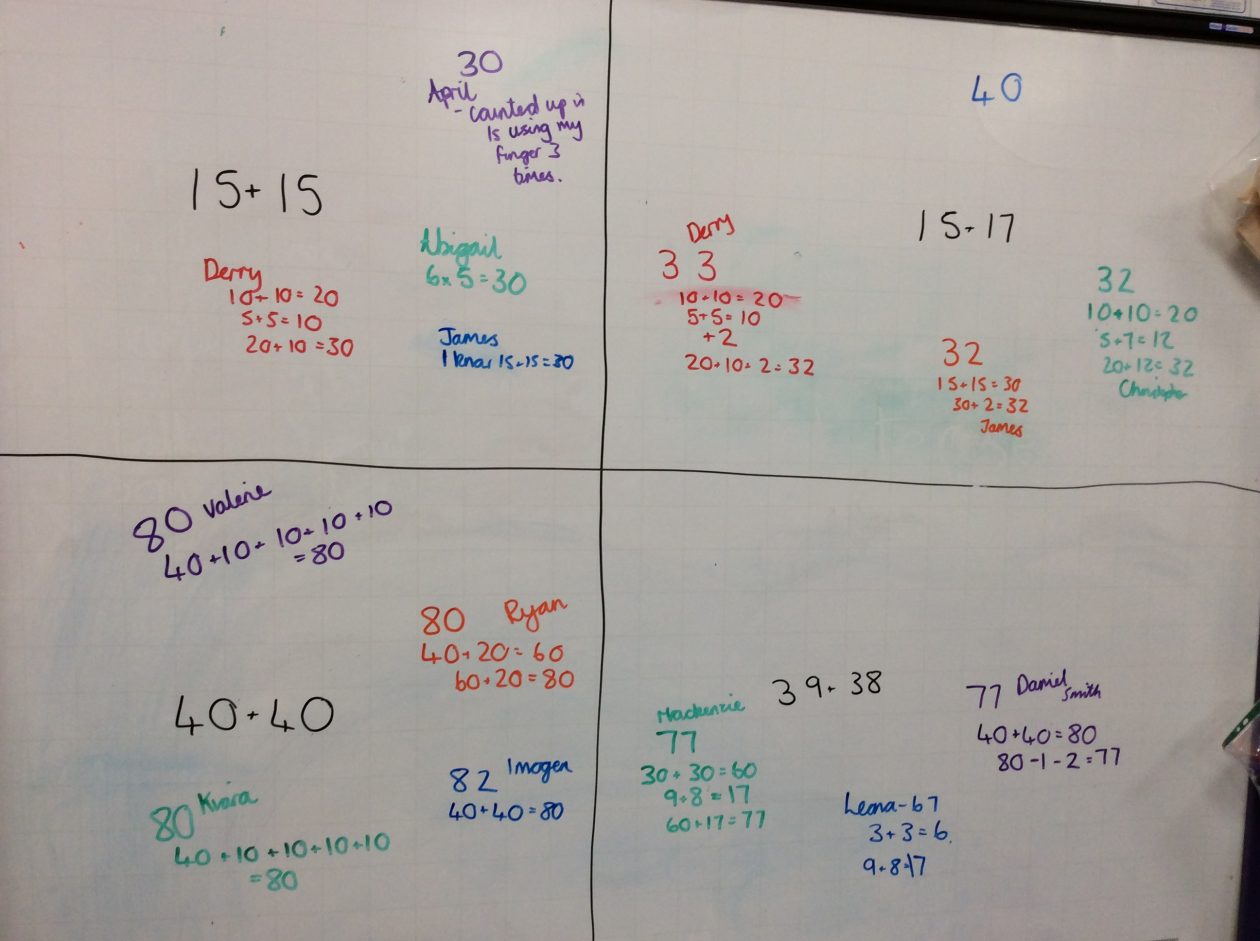 30
April
- counted up in
1s using my
finger 3
times.
15+ 15
Derry
10+ 10= 20
5+5=10
20+10 =30
Abigail
6x5=30
James
I know 15+15=30
40
15+17
Derry
33
10+10= 20
5+5=10
+2
20+10+2=32
32
15+15=30
30+2=32
James
32
10+10=20
5+7=12
20+12=32
Christopher
80 Valerie
40+10+ 10+10+10
=80
80 Ryan
40+20= 60
60+20=80
40+40
82 Imogen
40+40=80
80 Kiara
40+10+10+10+10
=80
39+ 38
Mackenzie
77
30+30=60
9+8=17
60+17=77
77 Daniel
Smith
40+40=80
80-1-2=77
67
3+3=6.
9+8=17